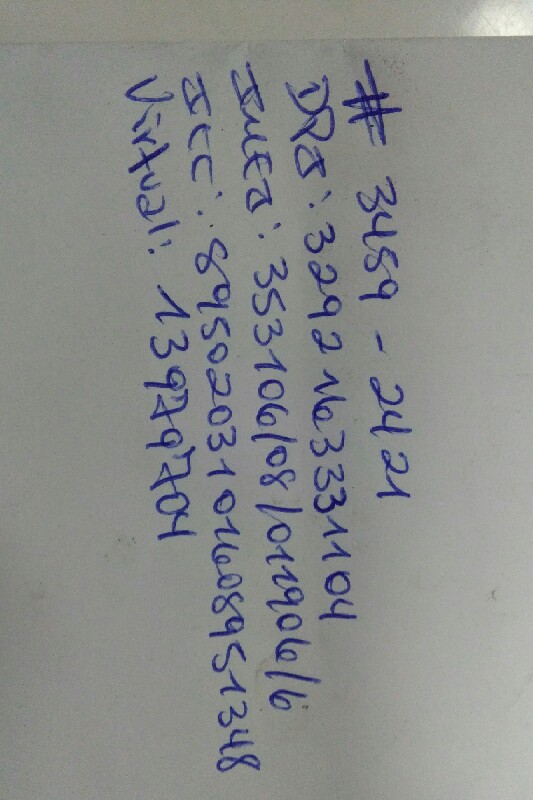 # 3459 - 2421
DPI: 3292 163331104
IMEI: 353106/08/011906/6
ICC: 8950203101608951348
Virtual: 13979704